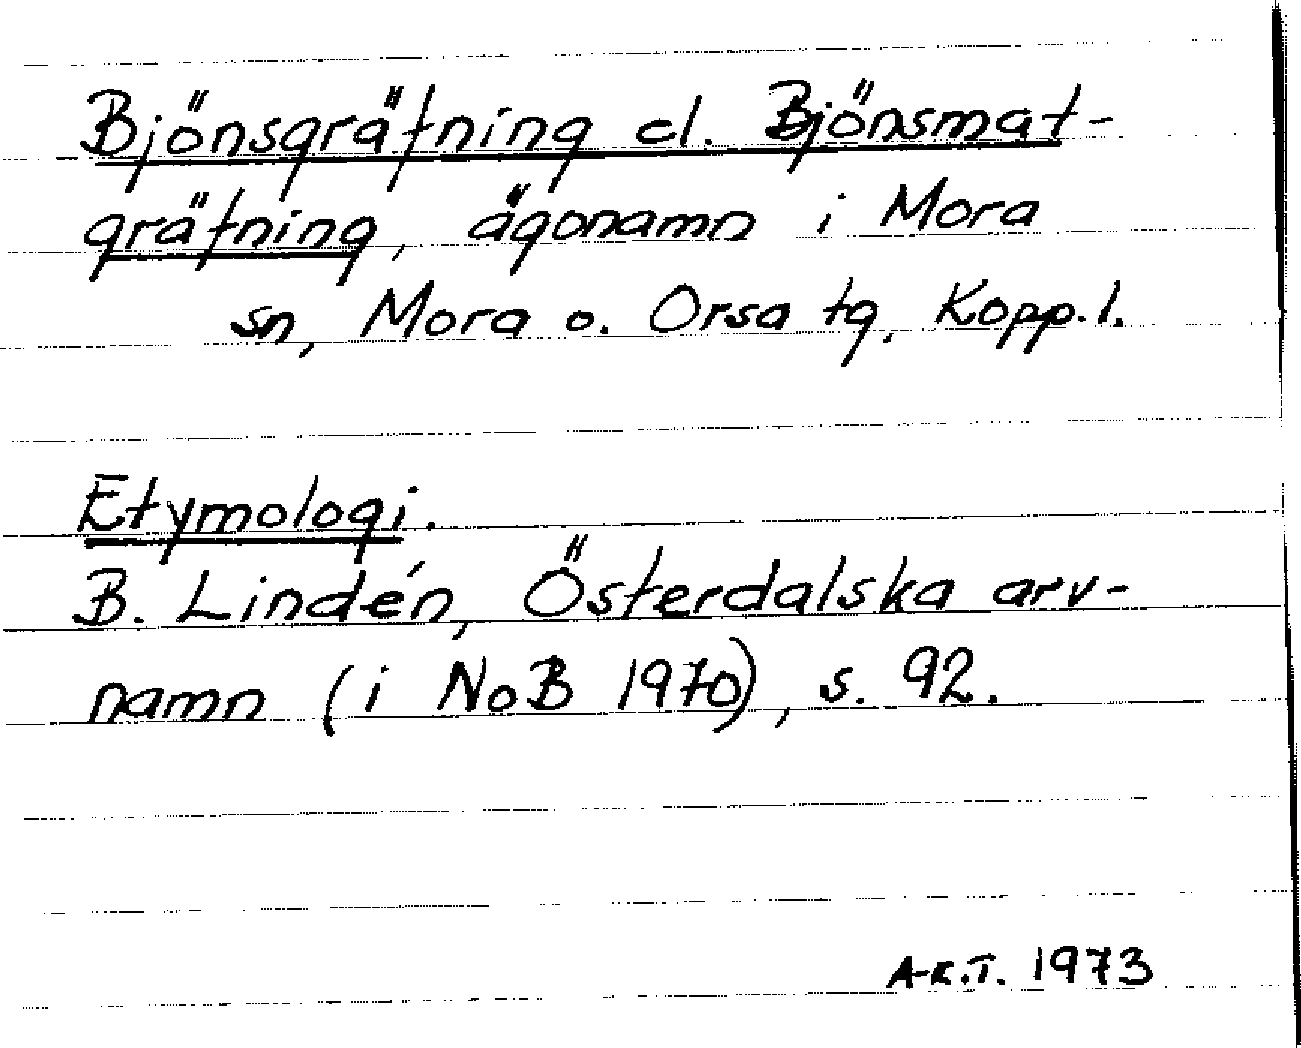 Bjönsgrätning el. Bjönsmat-
grätning, ägonamn i Mora
sn, Mora o. Orsa tg, Kopp. l.
Etymologi.
B. Lindén, Österdalska arv-
namn (i NoB 1970), s. 92.
A-K.T. 1973